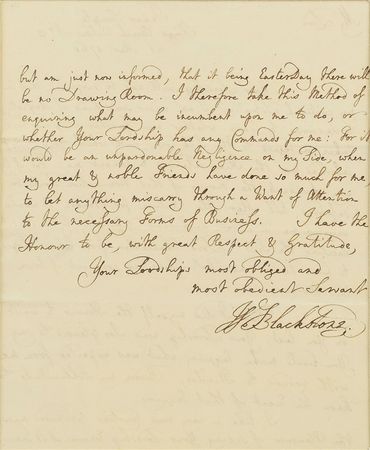 but am just now informed, that it being Easter Day there will
be no Drawing Room. I therefore take this Method of
enquiring what may be incumbent upon me to do, or
whether Your Lordship has any Commands for me: For it
would be an unpardonable Negligence on my Side, when
my great & noble Friends have done so much for me,
to let anything miscarry through a Want of Attention
to the necessary Forms of Business. I have the
Honour to be, with great Respect & Gratitude,
Your Lordships most obliged and
most obedient Servant
Wm Blackstone.